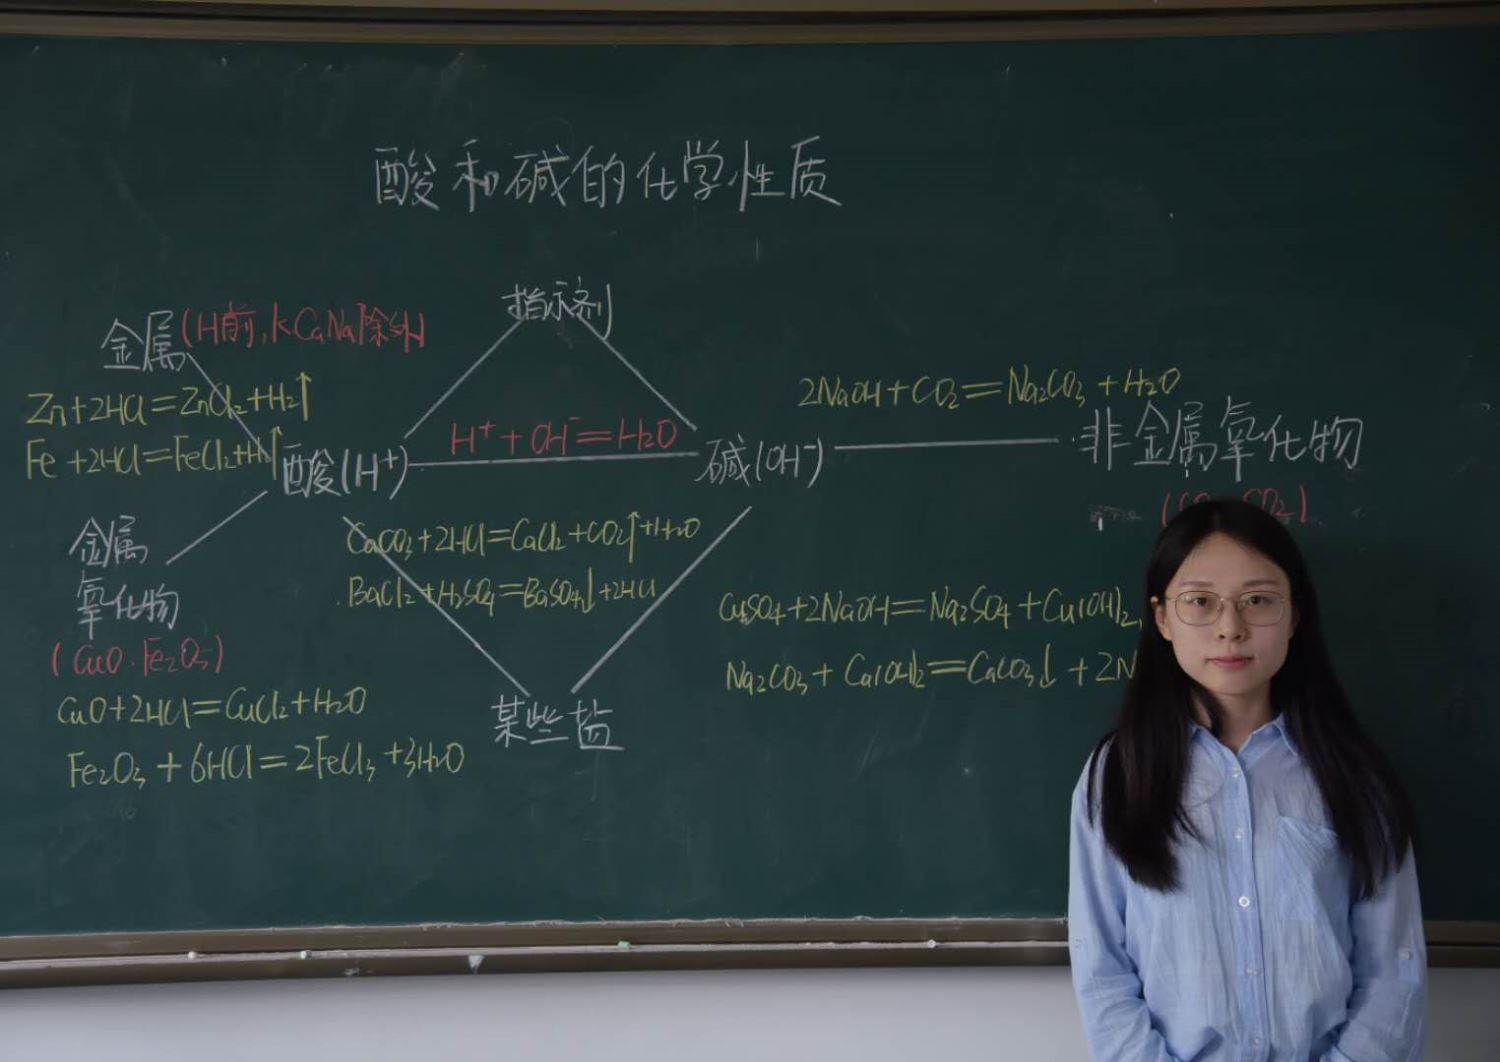 酸和碱的化学性质
指示剂
金属(H前,KCaNa除外)
Zn+2HCl=ZnCl₂+H₂↑
Fe+2HCl=FeCl₂+H₂↑
酸(H⁺)
H⁺+OH⁻=H₂O
碱(OH⁻)
2NaOH+CO₂=Na₂CO₃+H₂O
非金属氧化物
CO₂)
金属
氧化物
(CuO.Fe₂O₃)
CuO+2HCl=CuCl₂+H₂O
Fe₂O₃+6HCl=2FeCl₃+3H₂O
CaCO₃+2HCl=CaCl₂+CO₂↑+H₂O
BaCl₂+H₂SO₄=BaSO₄↓+2HCl
某些盐
CuSO₄+2NaOH=Na₂SO₄+Cu(OH)₂
Na₂CO₃+Ca(OH)₂=CaCO₃↓+2N